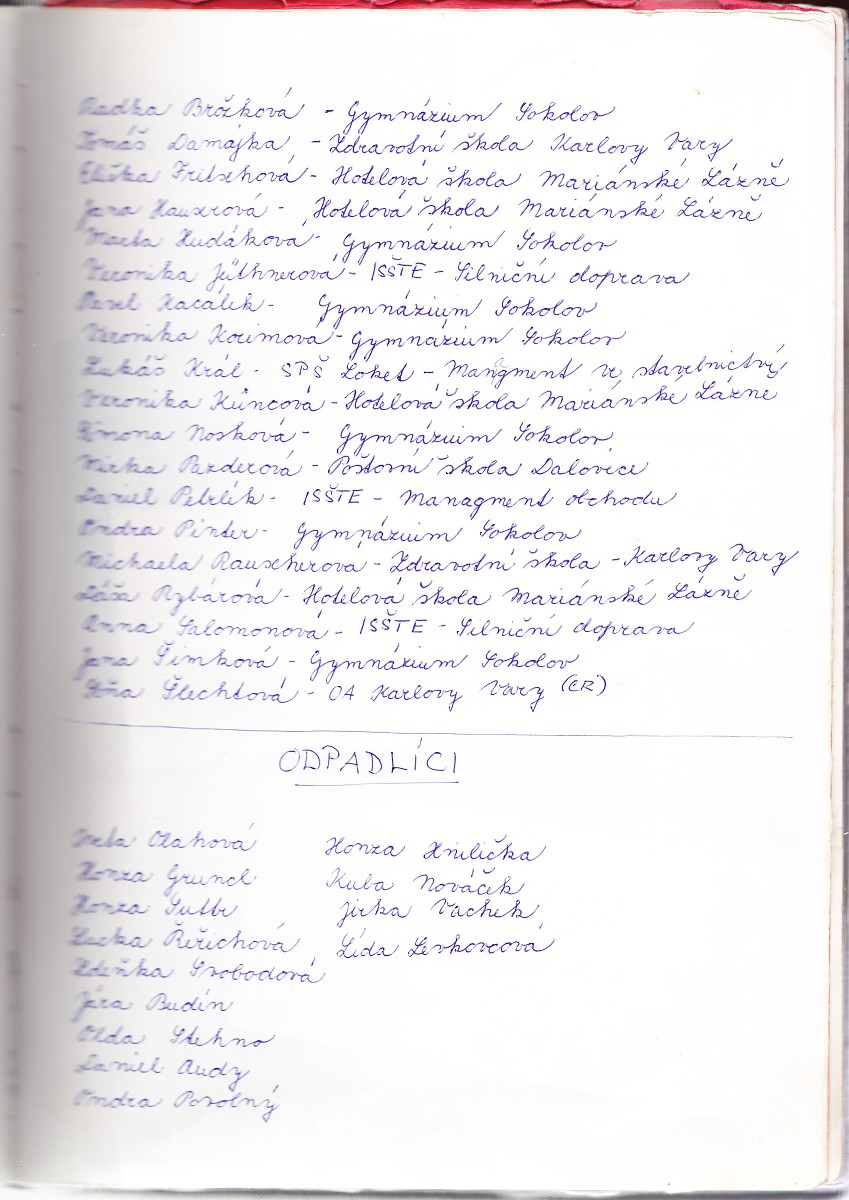 Radka Brožková - Gymnázium Sokolov
Tomáš Damajka - Zdravotní škola Karlovy Vary
Eliška Fritschová - Hotelová škola Mariánské Lázně
Jana Hauserová - Hotelová škola Mariánské Lázně
Marta Hudáková - Gymnázium Sokolov
Veronika Jüthnerová - ISŠTE - Silniční doprava
Pavel Kacálek - Gymnázium Sokolov
Veronika Korimová - Gymnázium Sokolov
Lukáš Král - SPŠ Loket - Mangment ve stavebnictví
Veronika Kůncová - Hotelová škola Mariánské Lázně
Simona Nosková - Gymnázium Sokolov
Mirka Pazderová - Poštovní škola Dalovice
Daniel Petrlík - ISŠTE - Managment obchodu
Ondra Pinter - Gymnázium Sokolov
Michaela Rauscherova - Zdravotní škola - Karlovy Vary
Láďa Rybárová - Hotelová škola Mariánské Lázně
Anna Salomonová - ISŠTE - Silniční doprava
Jana Šimková - Gymnázium Sokolov
Šlechtová - OA Karlovy Vary (CR)
ODPADLÍCI
Iveta Olahová Honza Hnilička
Honza Gruncl Kuba Nováček
Honza Jirka Vachek
Lucka Řeřichová Lída Levkovcová
Zdeňka Svobodová
Jára Budín
Olda Stehno
Daniel Audy
Ondra Povolný